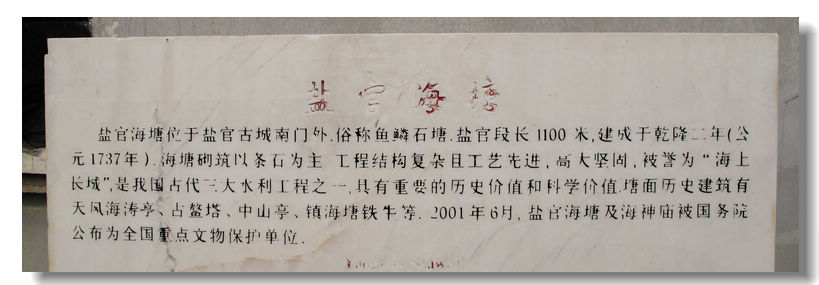 盐官海塘
盐官海塘位于盐官古城南门外.俗称鱼鳞石塘.盐官段长1100米,建成于乾隆二年(公
元1737年).海塘砌筑以条石为主 工程结构复杂且工艺先进,高大坚固,被誉为“海上
长城”,是我国古代三大水利工程之一,具有重要的历史价值和科学价值.塘面历史建筑有
天风海涛亭、占鳌塔、中山亭、镇海塘铁牛等.2001年6月,盐官海塘及海神庙被国务院
公布为全国重点文物保护单位.